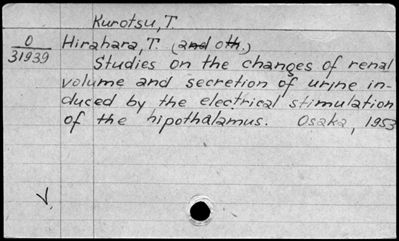 Kurotsu, T.
O
31939
Hirahara, T. (and oth.)
Studies on the changes of renal
volume and secretion of urine in-
duced by the electrical stimulation
of the hipothalamus. Osaka, 1953
V.